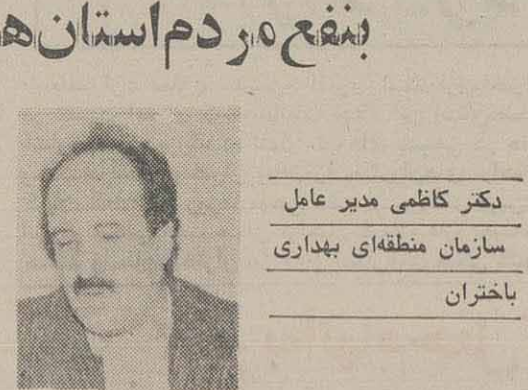 بنفع مردم استان‌ها
دکتر کاظمی مدیر عامل
سازمان منطقه‌ای بهداری
باختران